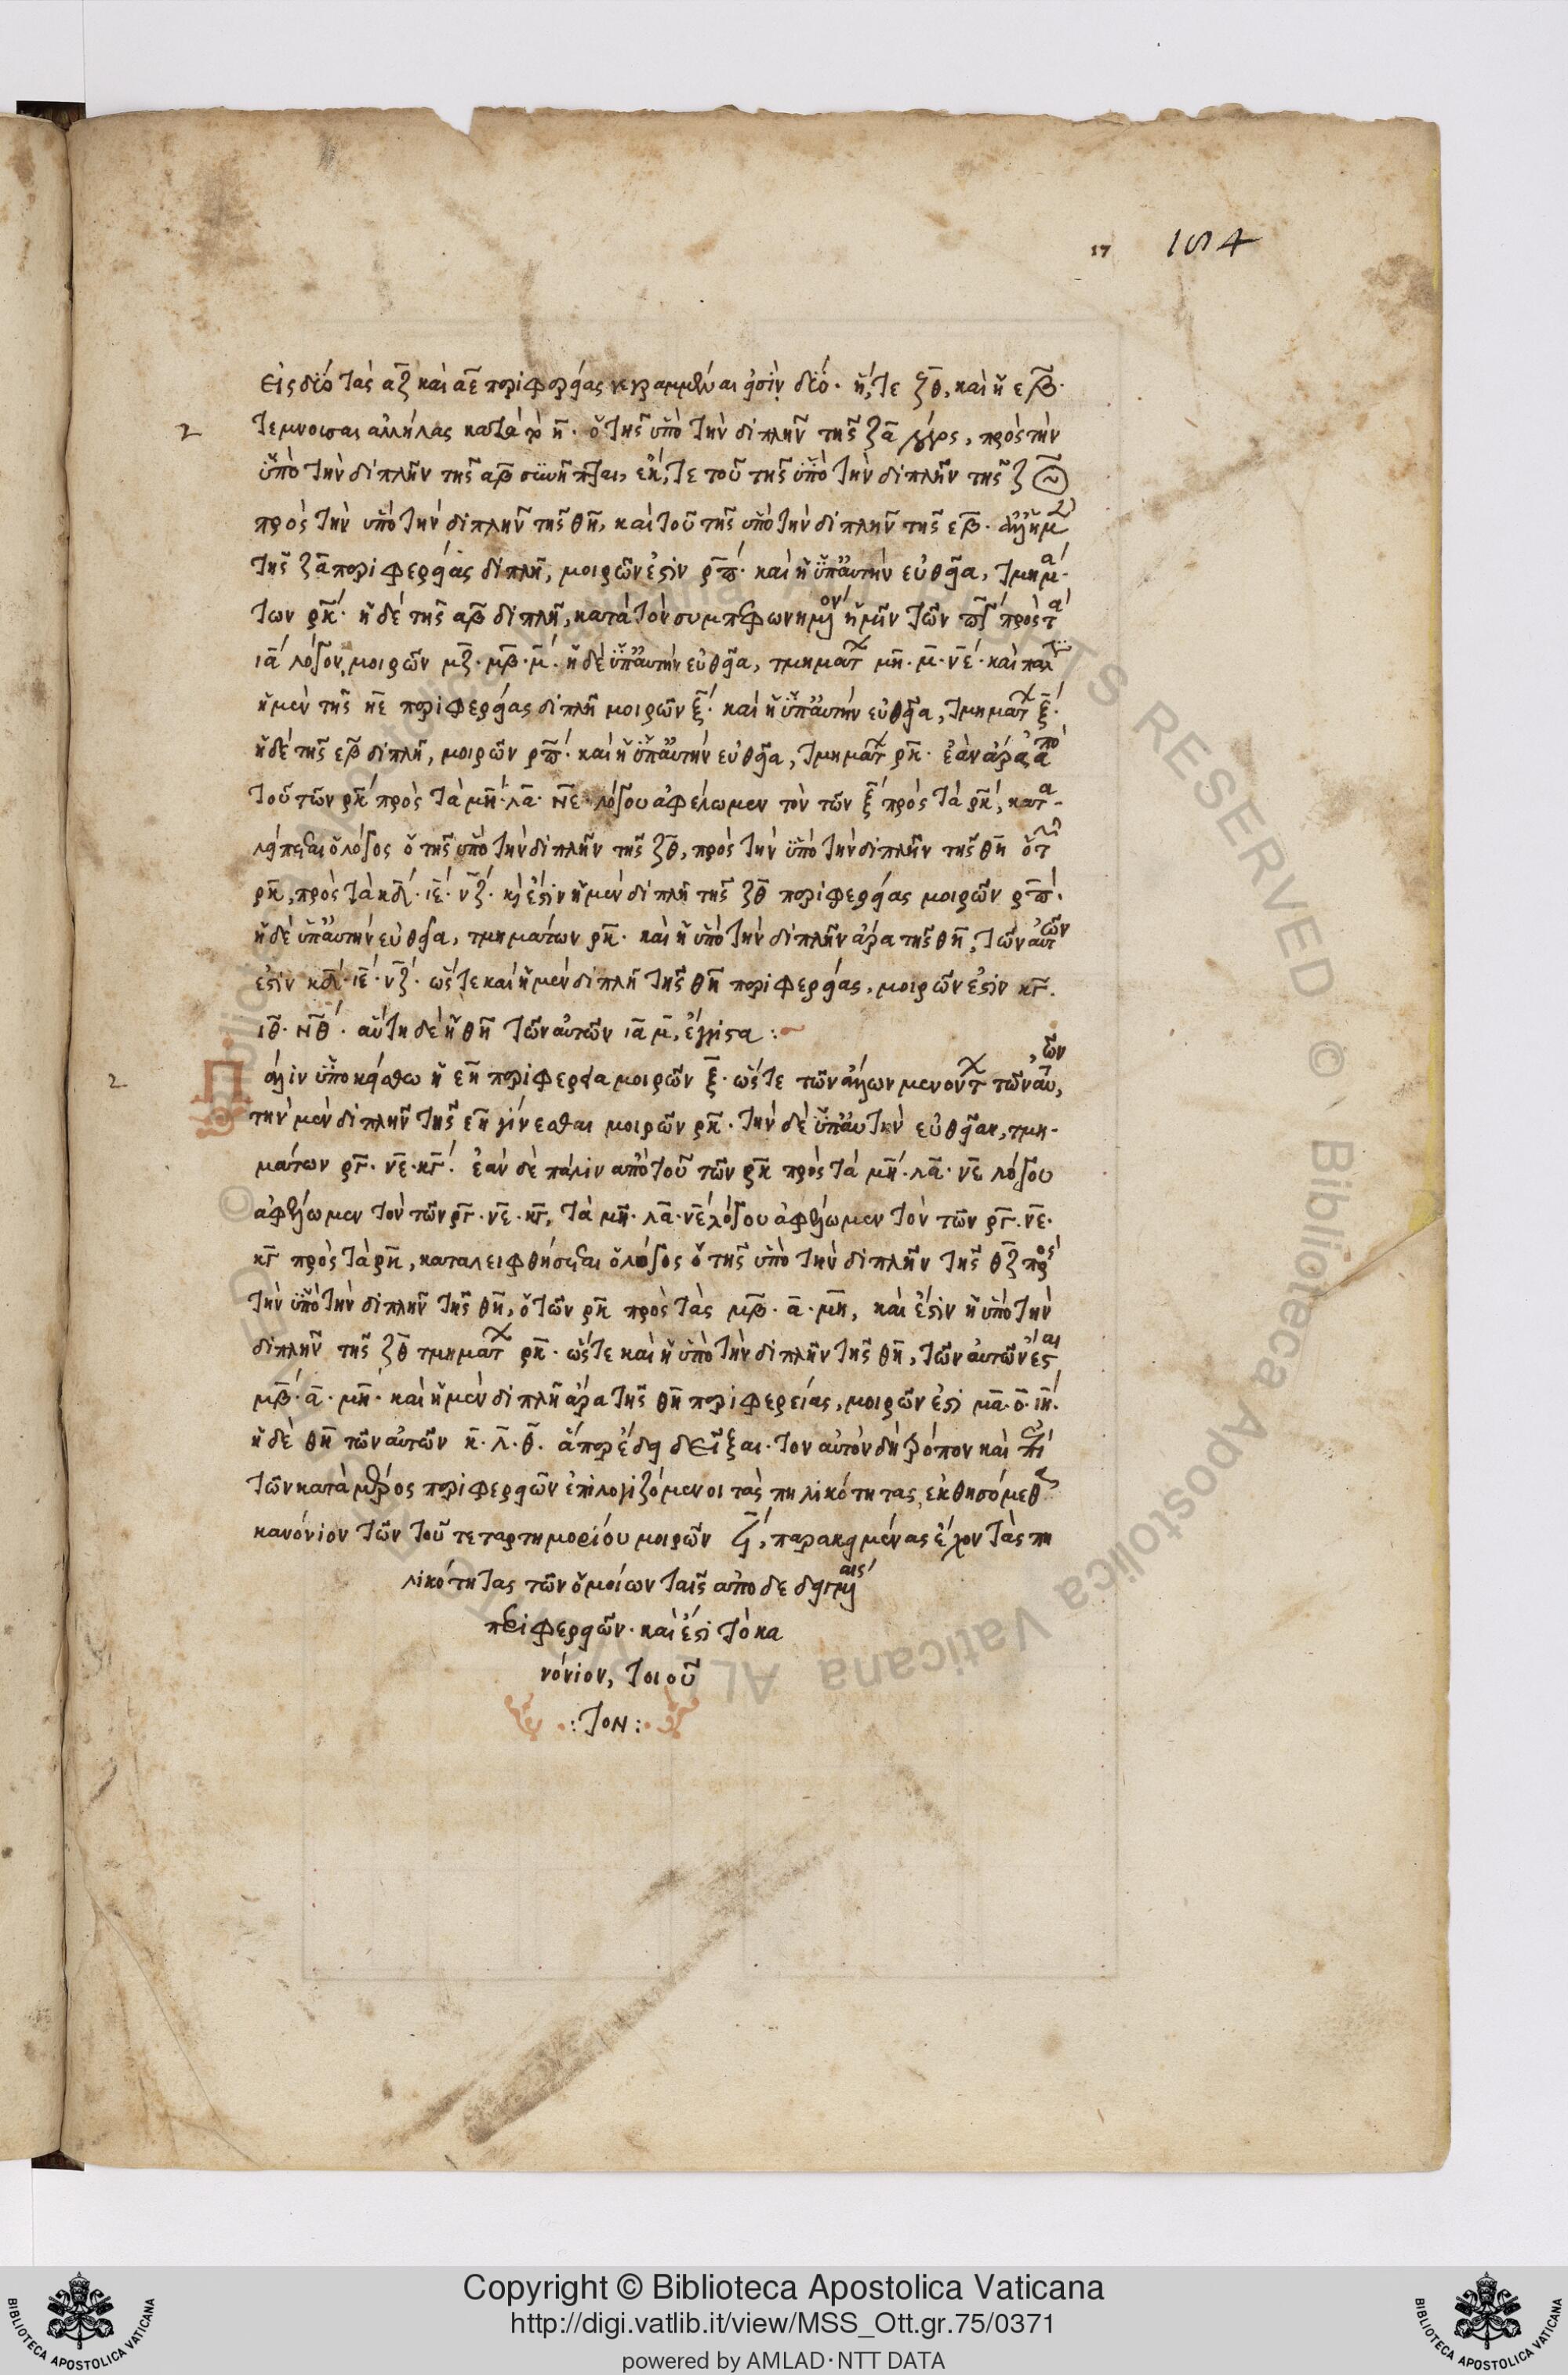 17 184
εἰς δύο τὰς αζ καὶ αε περιφερείας γεγραμμέναι εἰσὶν δύο· ἥ, τε ζθ, καὶ ἡ εβ·
τεμνουσαι ἀλλήλας κατὰ τὸ η· ὁ τῆς ὑπὸ τὴν διπλῆν τῆς ζα λόγος, πρὸς τὴν
ὑπὸ τὴν διπλῆν τῆς αβ συνῆπται, ἔκ, τε τοῦ τῆς ὑπὸ τὴν διπλῆν τῆς ζθ
πρὸς τὴν ὑπὸ τὴν διπλῆν τῆς θη, καὶ τοῦ τῆς ὑπὸ τὴν διπλῆν τῆς εβ· ἀλλ ἡ μὲν
τῆς ζα περιφερείας διπλῆ, μοιρῶν ἐστὶν ρπ· καὶ ἡ ὑπ αὐτὴν εὐθεῖα, τμημά-
των ρκ· ἡ δὲ τῆς αβ διπλῆ, κατὰ τὸν συμπεφωνημένον ἡμῖν τῶν πγ πρὸς τὰ
ια λόγον, μοιρῶν μζ· μβ· μ· ἡ δὲ ὑπ αὐτὴν εὐθεῖα, τμημάτων μη· λα· νε· καὶ πάλιν
ἡ μὲν τῆς ηε περιφερείας διπλῆ μοιρῶν ξ· καὶ ἡ ὑπ αὐτὴν εὐθεῖα, τμημάτων ξ·
ἡ δὲ τῆς εβ διπλῆ, μοιρῶν ρπ· καὶ ἡ ὑπ αὐτὴν εὐθεῖα, τμημάτων ρκ· ἐὰν ἄρα ἀπὸ
τοῦ τῶν ρκ πρὸς τὰ μη· λα· νε λόγου ἀφέλωμεν τὸν τῶν ξ πρὸς τὰ ρκ, κατα-
λείπεται ὁ λόγος ὁ τῆς ὑπὸ τὴν διπλῆν τῆς ζθ, πρὸς τὴν ὑπὸ τὴν διπλῆν τῆς θη ὁ τῶν
ρκ, πρὸς τὰ κδ· ιε· νζ· κ ἐστὶν ἡ μὲν διπλῆ τῆς ζθ περιφερείας μοιρῶν ρπ·
ἡ δὲ ὑπ αὐτὴν εὐθεῖα, τμημάτων ρκ· καὶ ἡ ὑπὸ τὴν διπλῆν ἄρα τῆς θη, τῶν αὐτῶν
ἐστὶν κδ· ιε· νζ· ὥστε καὶ ἡ μὲν διπλῆ τῆς θη περιφερείας, μοιρῶν ἐστὶν κγ·
ιθ· νθ· αὕτη δὲ ἡ θη τῶν αὐτῶν ια μ, ἔγγιστα :~
Πάλιν ὑποκείσθω ἡ εη περιφέρεια μοιρῶν ξ· ὥστε τῶν ἄλλων μενόντων τῶν αὐτῶν,
τὴν μὲν διπλῆν τῆς εη γίνεσθαι μοιρῶν ρκ· τὴν δὲ ὑπ αὐτὴν εὐθεῖαν, τμη-
μάτων ργ· νε· κγ· ἐὰν δὲ πάλιν ἀπὸ τοῦ τῶν ρκ πρὸς τὰ μη· λα· νε λόγου
ἀφέλωμεν τὸν τῶν ργ· νε· κγ, τὰ μη· λα· νε λόγου ἀφέλωμεν τὸν τῶν ργ· νε·
κγ πρὸς τὰ ρκ, καταλειφθήσεται ὁ λόγος ὁ τῆς ὑπὸ τὴν διπλῆν τῆς θζ πρὸς
τὴν ὑπὸ τὴν διπλῆν τῆς θη, ὁ τῶν ρκ πρὸς τὰς μβ· α· μη, καὶ ἐστὶν ἡ ὑπὸ τὴν
διπλῆν τῆς ζθ τμημάτων ρκ· ὥστε καὶ ἡ ὑπὸ τὴν διπλῆν τῆς θη, τῶν αὐτῶν ἔσται
μβ· α· μη· καὶ ἡ μὲν διπλῆ ἄρα τῆς θη περιφερείας, μοιρῶν ἐστὶ μα· ο· ιη·
ἡ δὲ θη τῶν αὐτῶν κ· λ· θ· ἅπερ ἔδει δεῖξαι· τὸν αὐτὸν δὴ τρόπον καὶ ἐπὶ
τῶν κατὰ μέρος περιφερειῶν ἐπιλογιζόμενοι τὰς πηλικότητας, ἐκθησόμεθα
κανόνιον τῶν τοῦ τεταρτημορίου μοιρῶν ϟ, παρακειμένας ἔχον τὰς πη
λικότητας τῶν ὁμοίων ταῖς ἀποδεδειγμέναις
περιφερειῶν· καὶ ἔστι τὸ κα
νόνιον, τοιοῦ
:τον:
Copyright © Biblioteca Apostolica Vaticana
http://digi.vatlib.it/view/MSS_Ott.gr.75/0371
powered by AMLAD·NTT DATA
BIBLIOTECA APOSTOLICA VATICANA
BIBLIOTECA APOSTOLICA VATICANA